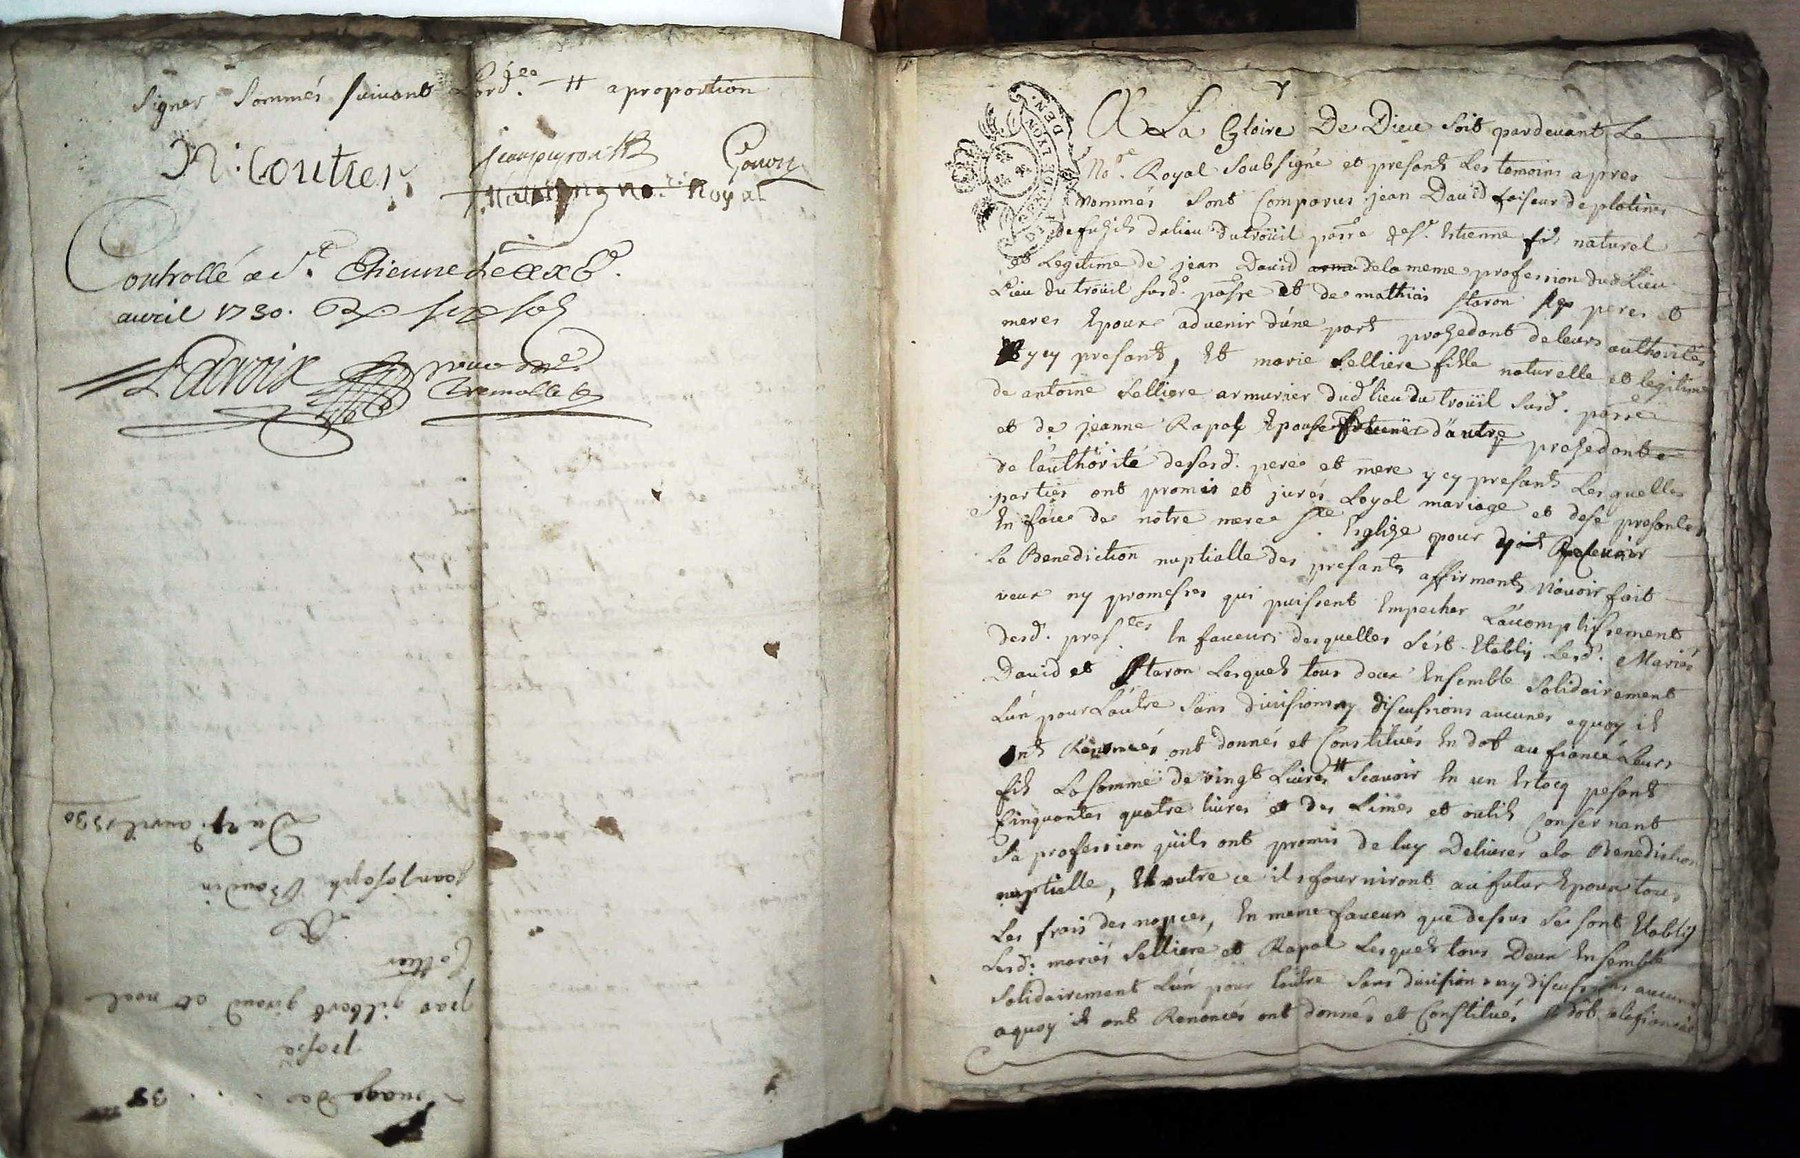 signer sommés suivant Lord.ce # aproportion
N: Coutier
Gonon
no.re Royal
Controllé a St. Etienne le
avril 1730. six sols
Lacroix
Du avril 1730
jean joseph Baudin
&
par gilbert giraud et noel
38
DEN. LYON
A La Gloire De Dieu soit pardevant Le
No.re Royal soubsigné et presant Les temoins apres
nommés sont Comparus jean David faiseur de platines
de fuzils du lieu du troüil parre de St. Estienne fils naturel
et Legitime de jean David de la meme profession dud. Lieu
Lieu du troüil susd. parre et de mathias staron ses peres et
meres Epoux advenir d'une part prosedant de leurs authorités
ycy presants, Et marie selliere fille naturelle et legitime
de antoine selliere armurier dud. lieu du troüil susd. parre
et de jeanne Rapal Epouse advenir d'autre prosedante
de l'authorité desesd. pere et mere ycy presants Lesquelles
parties ont promis et jurés Loyal mariage et dese presenter
En face de notre mere Ste. Eglize pour y Recevoir
La Benediction nuptialle des presants affirmants n'avoir fait
veux ny promesses qui puissent Empecher L'accomplissement
desd. pres.tes En faveurs desquelles s'est Etablis Lesd. Mariés
David et staron Lesquels tous deux Ensemble solidairement
L'un pour L'autre sans divisions ny discussions aucunes aquoy ils
ont Renoncés ont donnés et Constitués En dot au fiancé Leurs
fils La somme de vingt Livres # scavoir En un Estocq pesant
Cinquantes quatre livres et des Limes et outils Consernant
sa profession qu'ils ont promis de luy Delivrer a la Benediction
nuptielle, Et outre ce ils fourniront au futur Epoux tous
Les frais des nopces, En meme faveurs que dessus se sont Etablis
Lesd. mariés selliere et Rapal Lesquels tous Deux Ensemble
solidairement L'un pour l'autre sans divisions ny discussions aucune
aquoy ils ont Renoncés ont donnés et Constitués